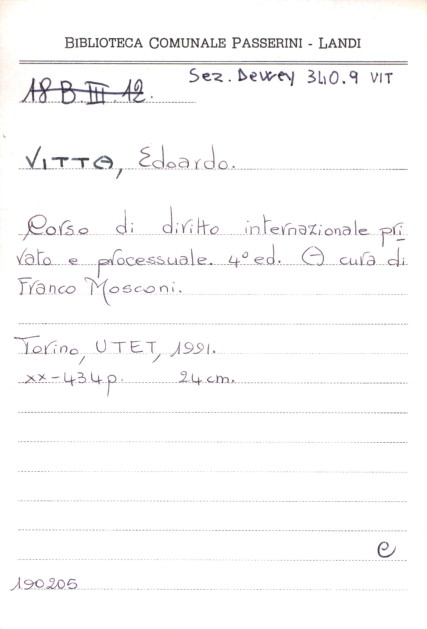 BIBLIOTECA COMUNALE PASSERINI - LANDI
Sez. Dewey 340.9 VIT
18 B. III. 12.
VITTA, Edoardo.
Corso di diritto internazionale pri
vato e processuale. 4° ed. A cura di
Franco Mosconi.
Torino, UTET, 1991.
xx-434 p. 24 cm.
e
190205